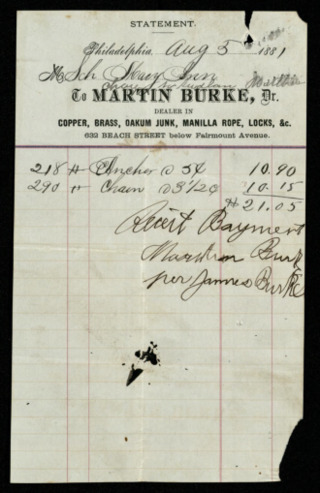 STATEMENT.
Philadelphia, Aug 5 1881
M Sch
To MARTIN BURKE, Dr.
DEALER IN
COPPER, BRASS, OAKUM JUNK, MANILLA ROPE, LOCKS, &c.
632 BEACH STREET below Fairmount Avenue.
218 # Anchor @ 5¢ 10.90
290 " Chain @ 3 1/2¢ 10.15
$21.05
Payment
Burk
per James Burke